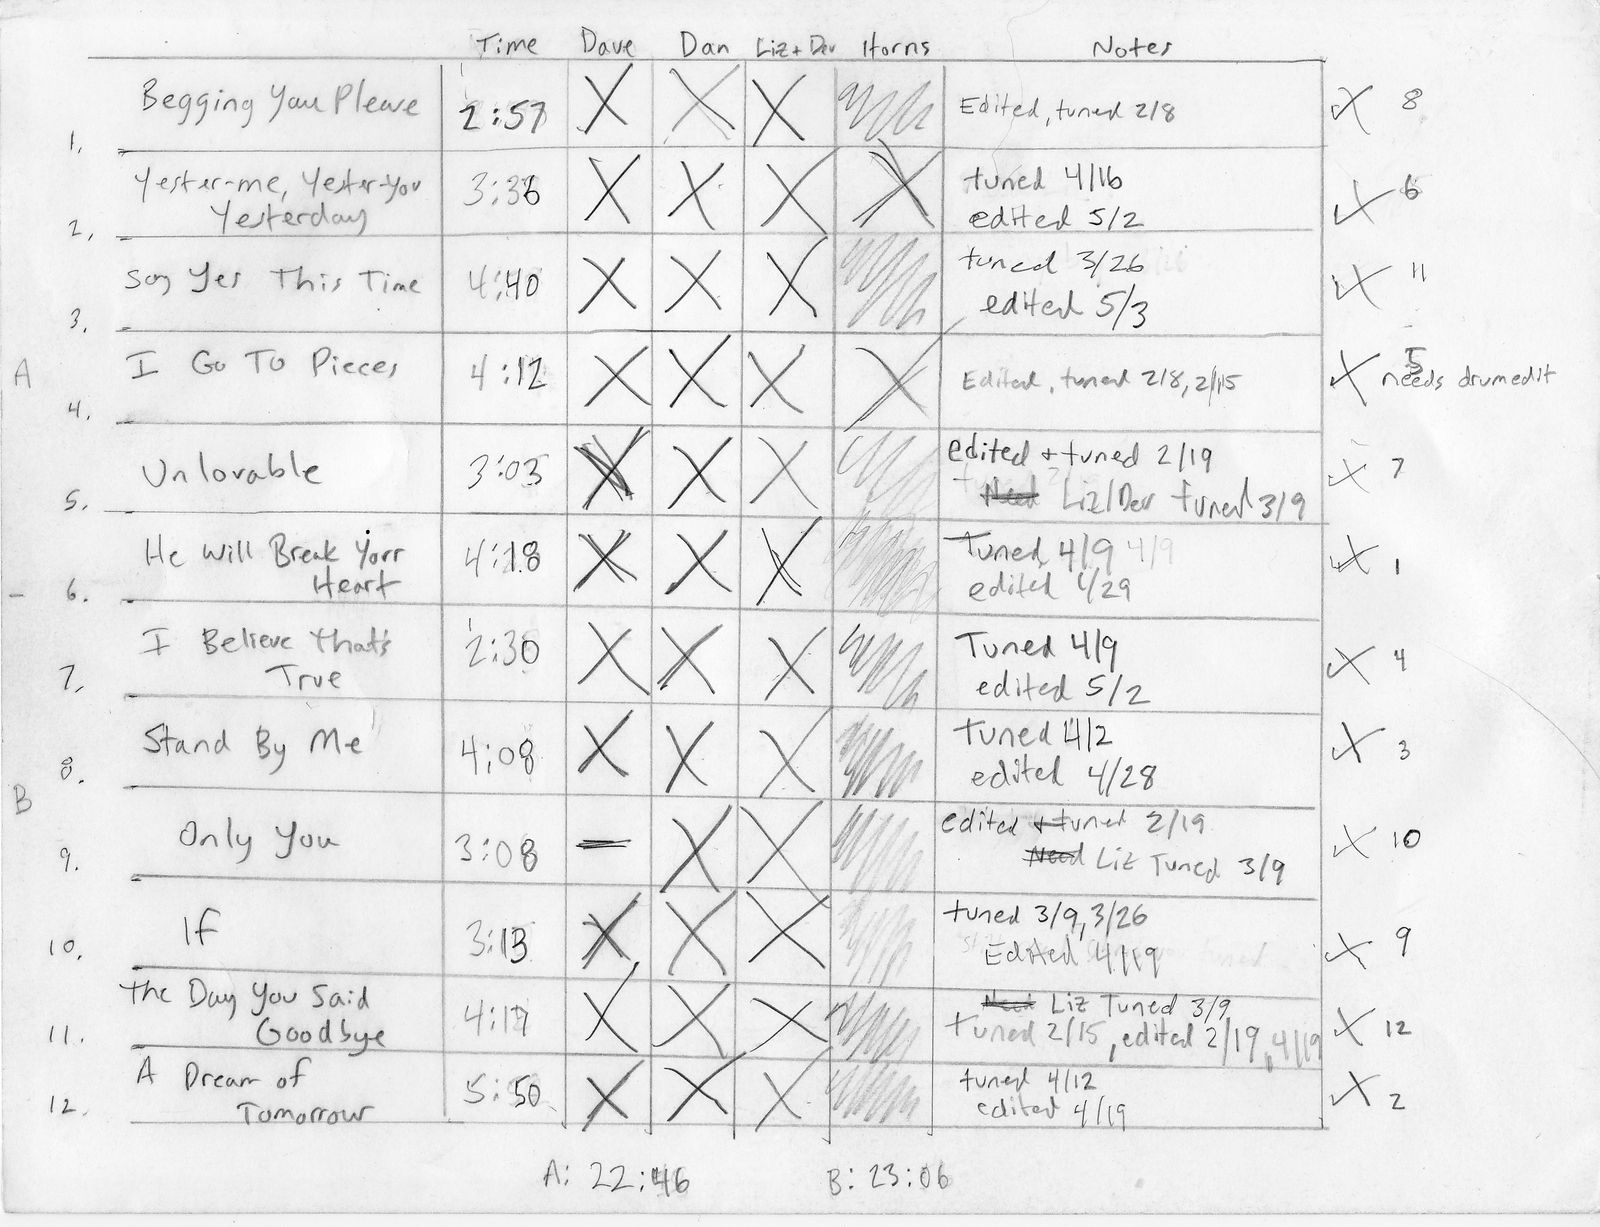 Time Dave Dan Liz + Dev Horns Notes
1. Begging You Please 2:57 X X X Edited, tuned 2/8 8
2. Yester-me, Yester-You 3:36 X X X X tuned 4/16 6
Yesterday edited 5/2
3. Say Yes This Time 4:40 X X X tuned 3/26 11
edited 5/3
A
4. I Go To Pieces 4:12 X X X X Edited, tuned 2/8, 2/15 5
needs drumedit
5. Unlovable 3:03 X X X edited + tuned 2/19 7
Need Liz/Dev tuned 3/9
6. He Will Break Your 4:18 X X X Tuned 4/9 4/9 1
Heart edited 4/29
7. I Believe That's 2:30 X X X Tuned 4/9 4
True edited 5/2
8. Stand By Me 4:08 X X X Tuned 4/2 3
edited 4/28
B
9. Only You 3:08 – X X edited + tuned 2/19 10
Need Liz Tuned 3/9
10. If 3:13 X X X tuned 3/9, 3/26 9
Edited 4/19
11. The Day You Said 4:17 X X X Need Liz Tuned 3/9 12
Goodbye Tuned 2/15, edited 2/19, 4/19
12. A Dream of 5:50 X X X tuned 4/12 2
Tomorrow edited 4/19
A: 22:46 B: 23:06